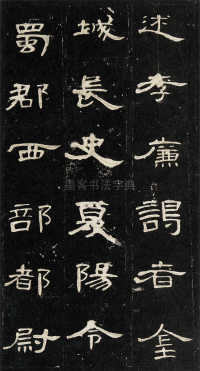 述孝廉謁者金
城長史夏陽令
蜀郡西部都尉
墨客书法字典